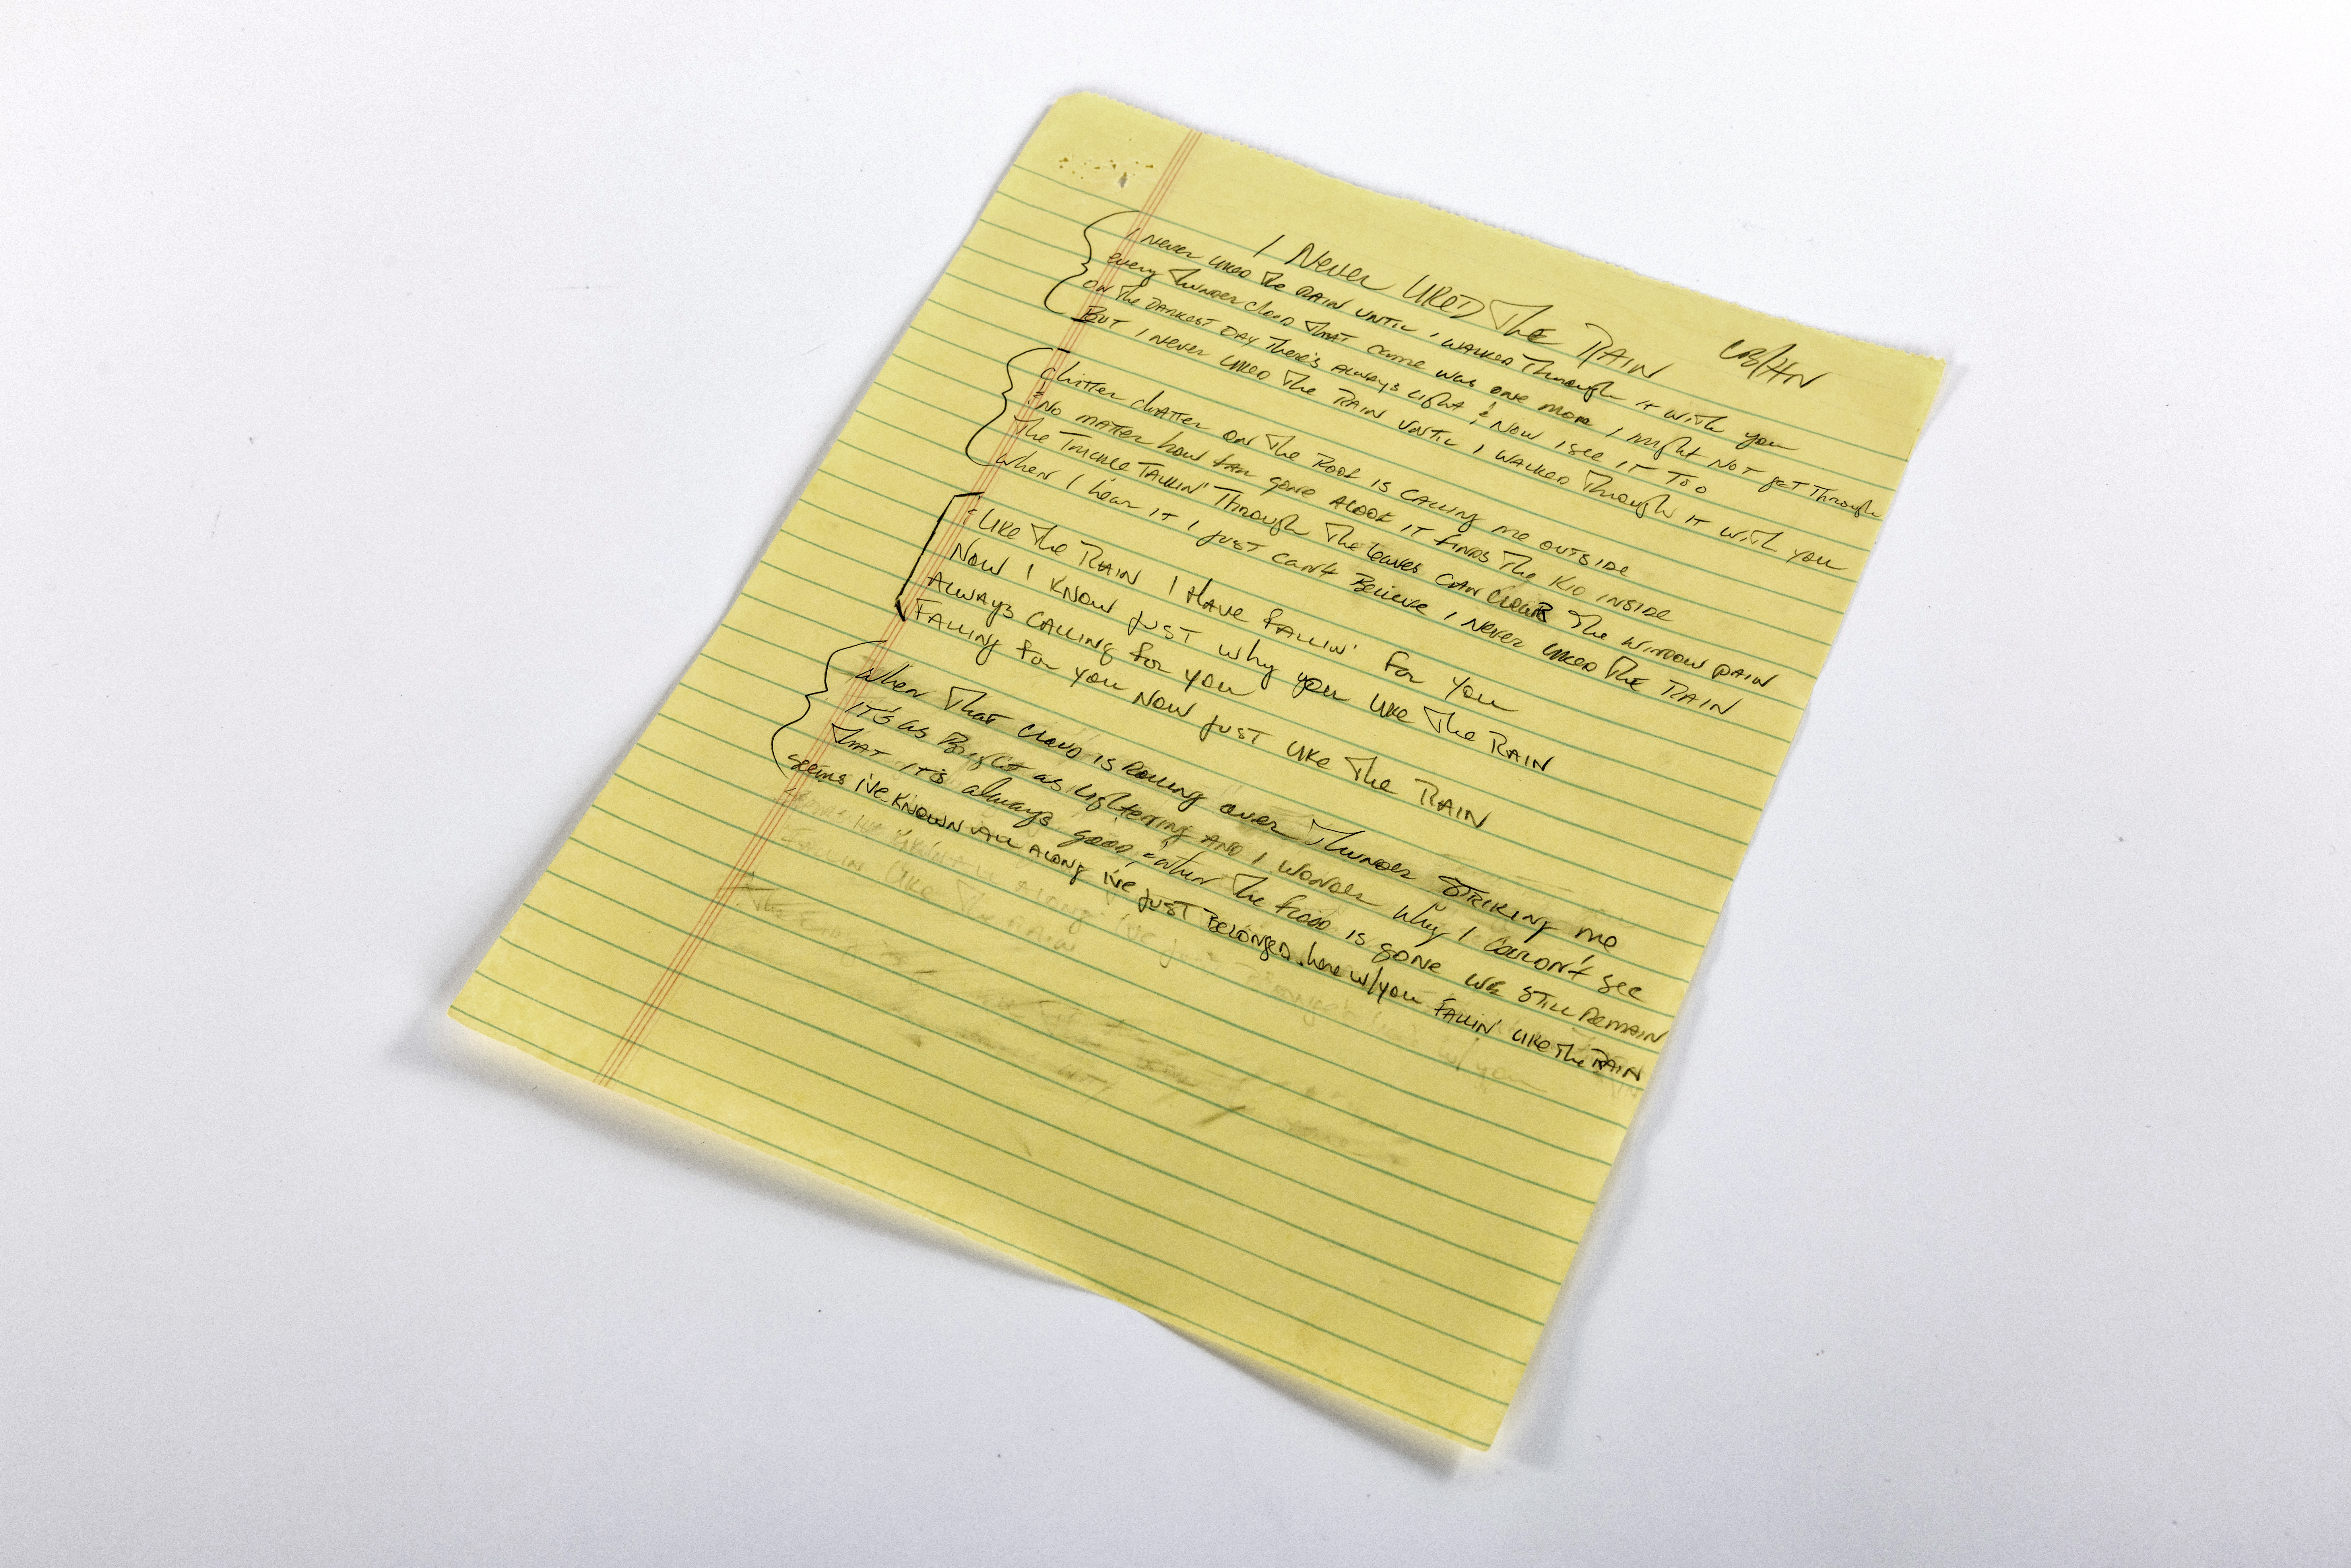 I Never LIKED The RAIN CB/HN
I Never LIKED The RAIN UNTIL I WALKED Through IT WITH you
every Thunder cloud That came was one more I might NOT get Through
ON The DARKEST DAY There's ALWAYS LIGHT & NOW I see IT Too
BUT I Never LIKED The RAIN UNTIL I WALKED Through IT WITH you
Chitter chatter ON The ROOF IS CALLING me OUTSIDE
NO MATTER how far gone ALOOF IT FINDS The KID INSIDE
The TRICKLE TALKIN' Through The Leaves CAN CLOUD The WINDOW PAIN
When I hear IT I JUST can't Believe I Never LIKED The RAIN
LIKE The RAIN I HAVE FALLIN' For You
NOW I KNOW JUST why you LIKE The RAIN
ALWAYS CALLING for you
FALLING for you NOW JUST LIKE The RAIN
When That CLOUD IS ROLLING over Thunder STRIKING me
IT'S as Bright as Lightening AND I wonder Why I couldn't see
THAT IT'S always good, when The flood IS gone we STILL REMAIN
seems I've KNOWN ALL ALONG I've JUST BELONGED here w/you FALLIN' LIKE The RAIN
FALLIN LIKE The RAIN